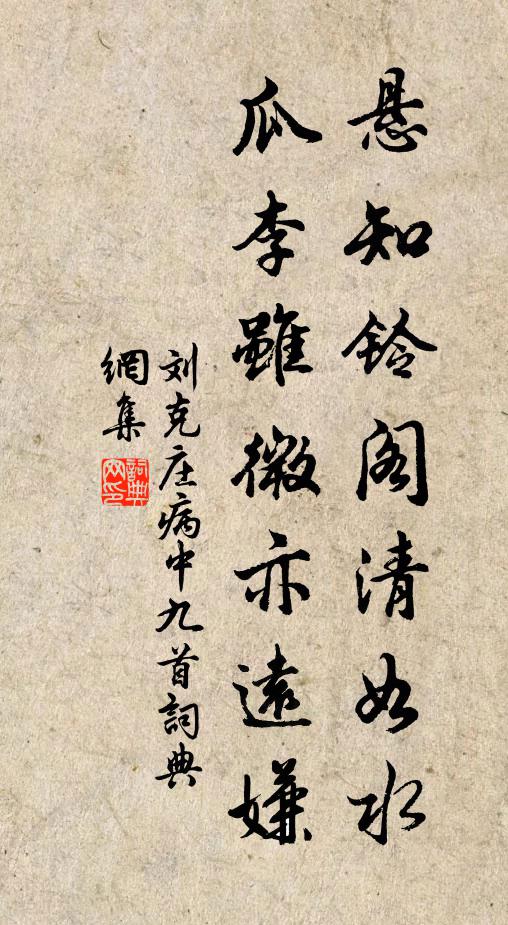 悬知铃阁清如水
瓜李虽微亦遠嫌
刘克庄病中九首詞典
網集
詞典网印